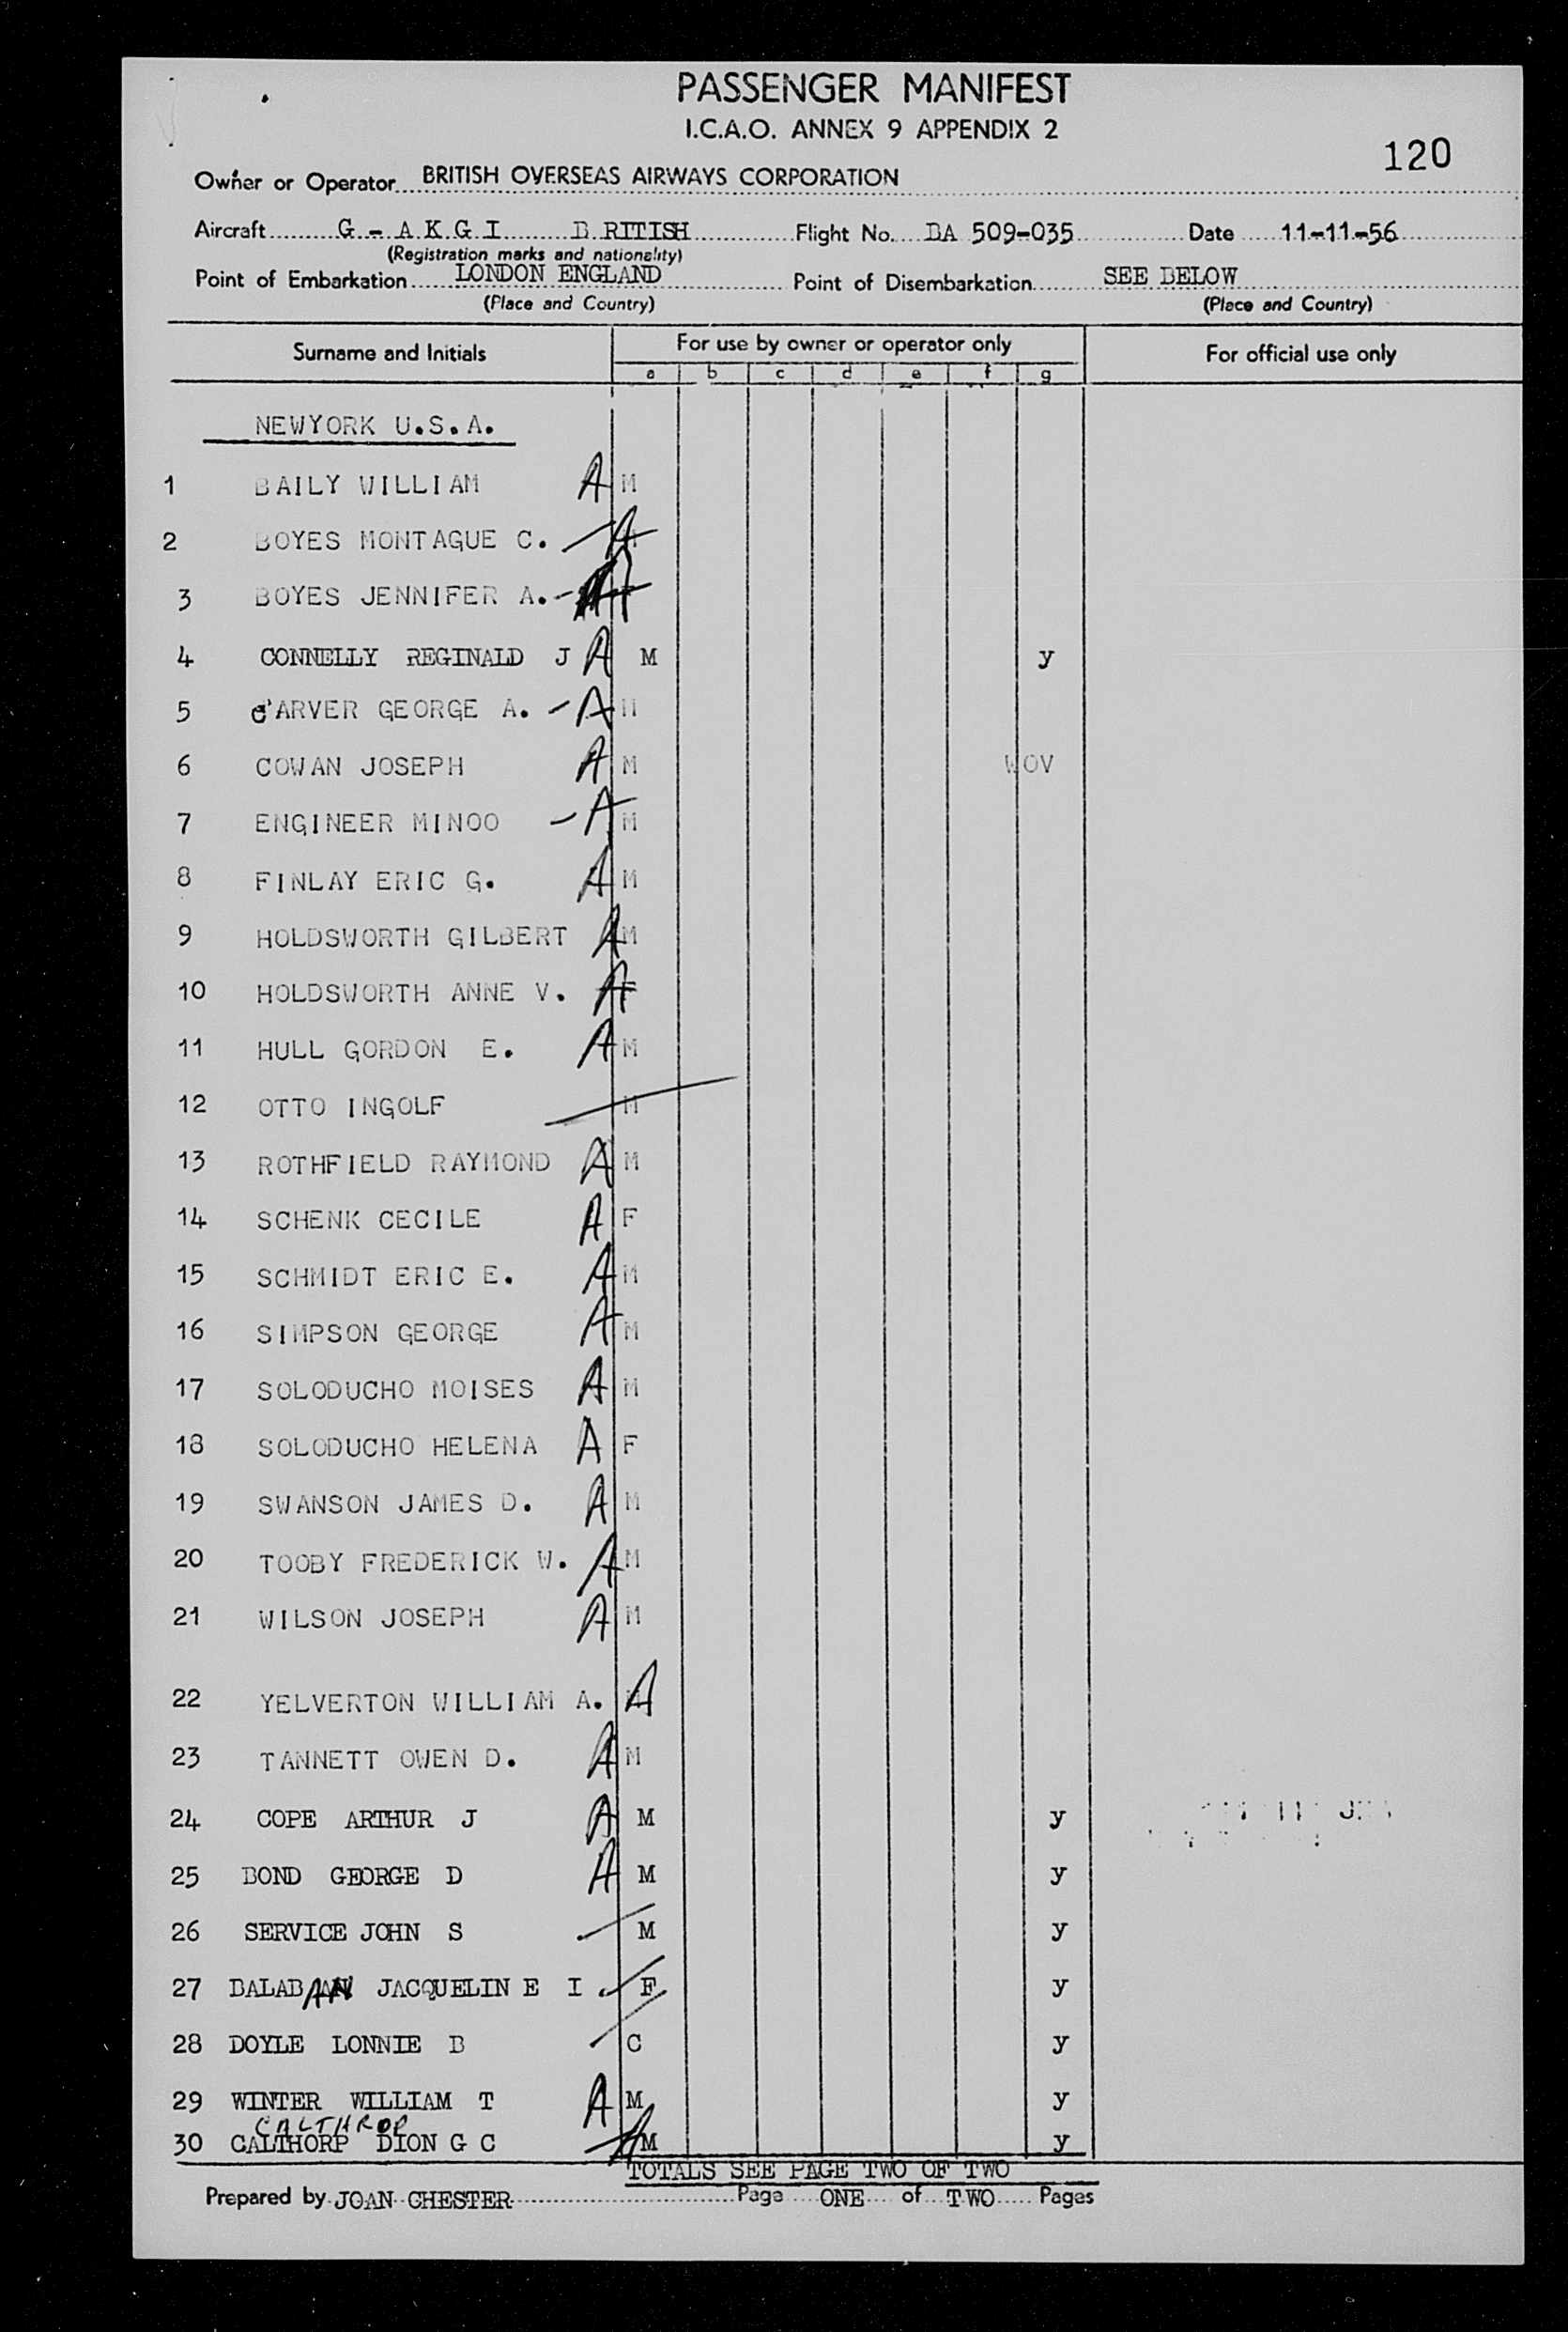 PASSENGER MANIFEST
I.C.A.O. ANNEX 9 APPENDIX 2
120
Owner or Operator BRITISH OVERSEAS AIRWAYS CORPORATION
Aircraft G - A K G I B RITISH Flight No. BA 509-035 Date 11-11-56
(Registration marks and nationality)
Point of Embarkation LONDON ENGLAND Point of Disembarkation SEE BELOW
(Place and Country) (Place and Country)
Surname and Initials For use by owner or operator only For official use only
a b c d e f g
NEWYORK U.S.A.
1 BAILY WILLIAM A M
2 BOYES MONTAGUE C. A
3 BOYES JENNIFER A. A
4 CONNELLY REGINALD J A M y
5 C'ARVER GEORGE A. A M
6 COWAN JOSEPH A M WOV
7 ENGINEER MINOO A M
8 FINLAY ERIC G. A M
9 HOLDSWORTH GILBERT A M
10 HOLDSWORTH ANNE V. A F
11 HULL GORDON E. A M
12 OTTO INGOLF M
13 ROTHFIELD RAYMOND A M
14 SCHENK CECILE A F
15 SCHMIDT ERIC E. A M
16 SIMPSON GEORGE A M
17 SOLODUCHO MOISES A M
18 SOLODUCHO HELENA A F
19 SWANSON JAMES D. A M
20 TOOBY FREDERICK W. A M
21 WILSON JOSEPH A M
22 YELVERTON WILLIAM A. A
23 TANNETT OWEN D. A M
24 COPE ARTHUR J A M y
25 BOND GEORGE D A M y
26 SERVICE JOHN S M y
27 BALABAN JACQUELIN E I F y
28 DOYLE LONNIE B C y
29 WINTER WILLIAM T A M y
CALTHROP
30 CALTHORP DION G C A M y
TOTALS SEE PAGE TWO OF TWO
Prepared by JOAN CHESTER Page ONE of TWO Pages